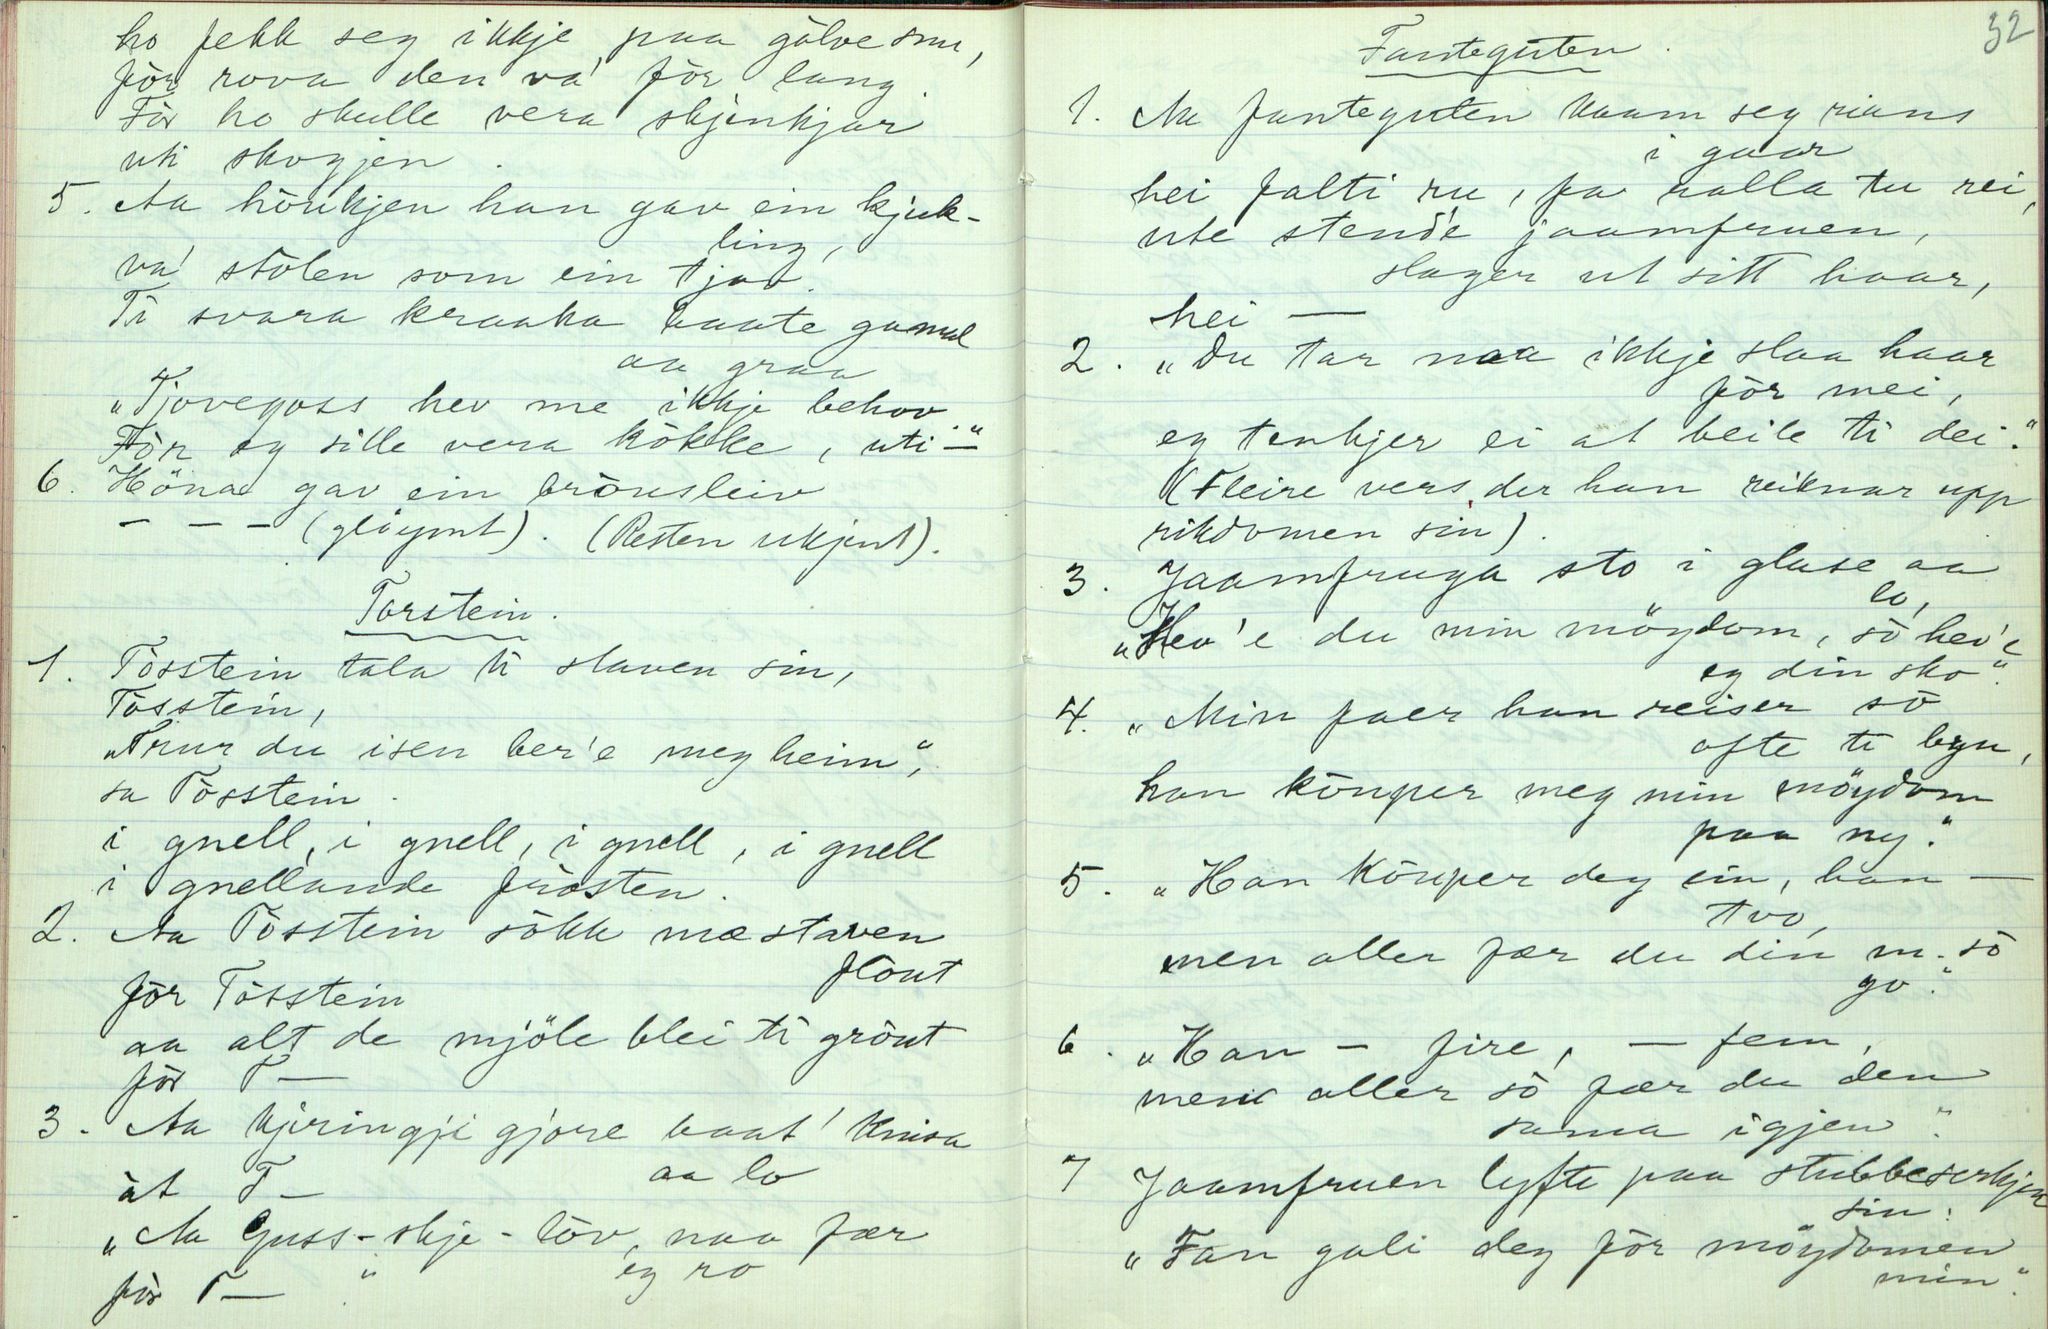 ho fekk seg ikkje paa gòlve snu,
fòr rova den va' fòr lang.
Fòr ho skulle vera skjenkjar
uti skogjen.
5. Aa hòukjen han gav ein kjuk-
ling,
va' stolen som ein tjov.
Ti svara kraaka baate gamal
aa graa
„Tjovegoss hev me ikkje behov
Fòr eg sille vera kòkke, uti —"
6. Höna gav ein bròusleiv
— — — (glöymt). (Resten ukjent).
Torstein.
1. Tòsstein tala ti staven sin,
Tòsstein,
„Trur du isen ber'e meg heim",
sa Tòsstein.
i gnell, i gnell, i gnell, i gnell
i gnellande fròsten.
2. Aa Tòsstein sòkk mæ staven
flòut
fòr Tòsstein
aa alt de mjöle blei ti gròut
fòr T—
3. Aa kjeringji gjore baat' knisa
aa lo
åt T—
„Aa Guss-skje-lòv, naa fær
eg ro
fòr T— "
32
Fanteguten.
1. Aa fanteguten kaam seg rians
i gaar
hei falti ru, fa ralla tu rei,
ute stende jaamfruen,
slager ut sitt haar,
hei —
2. „Du tar naa ikkje slaa haar
fòr mei,
eg tenkjer ei at beile ti dei."
(Fleire vers, der han reiknar upp
rikdomen sin).
3. Jaamfruga sto i glase aa
lo,
„Hev'e du min möydom, sò hev'e
eg din sko".
4. „Min faer han reiser sò
ofte ti byn,
han kòuper meg min möydom
paa ny."
5. „Han kòuper deg ein, han —
tvo,
men aller fær du din m. sò
go".
6. „Han — fire, — fem,
men aller sò fær du den
sama igjen".
7 Jaamfruen lyfte paa stubbeserkjen
sin:
„Fan gali deg fòr möydomen
min".